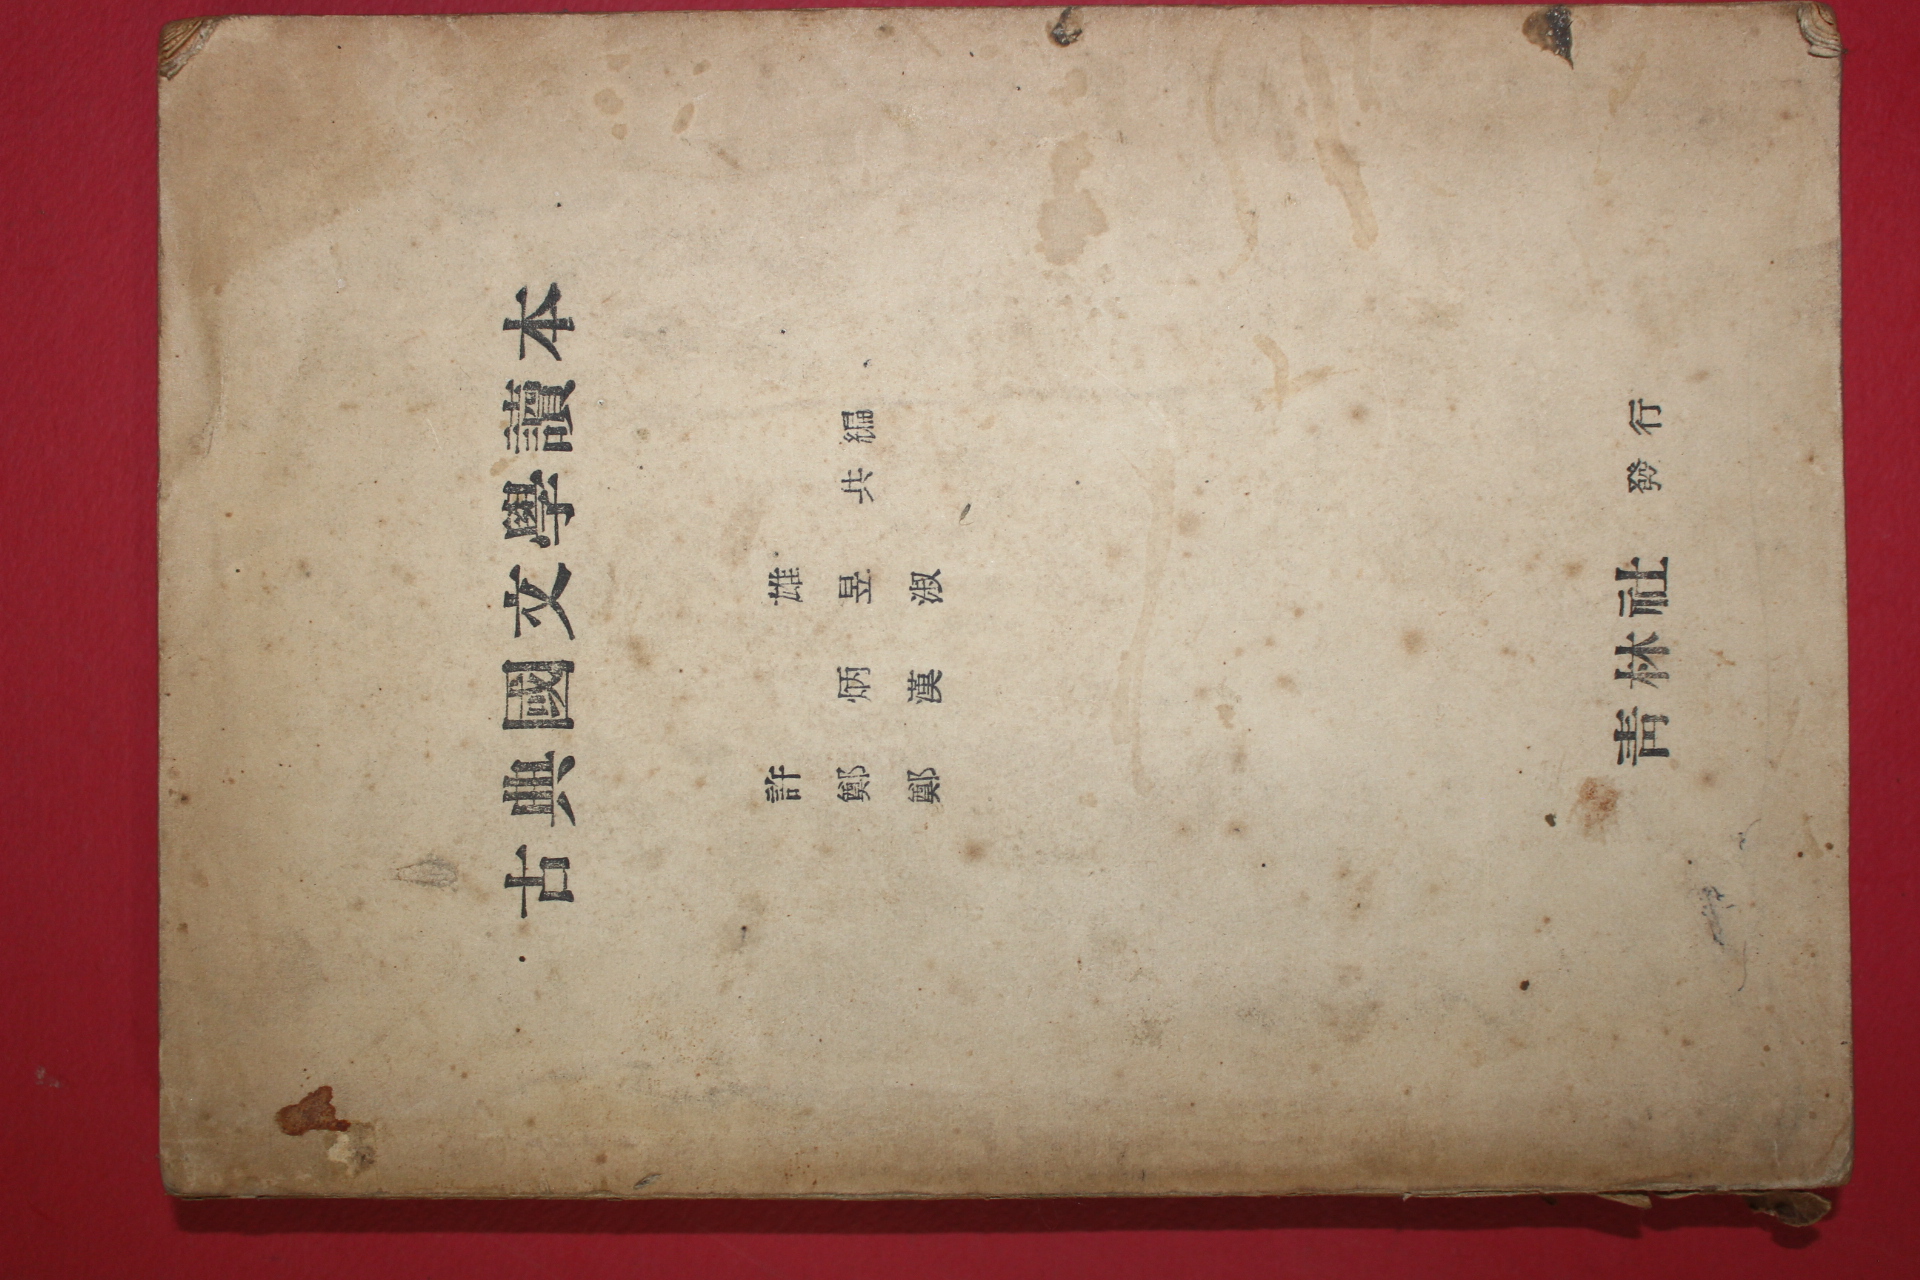 古典國文學讀本
許 雄
鄭炳昱 共編
鄭漢淑
靑林社 發行